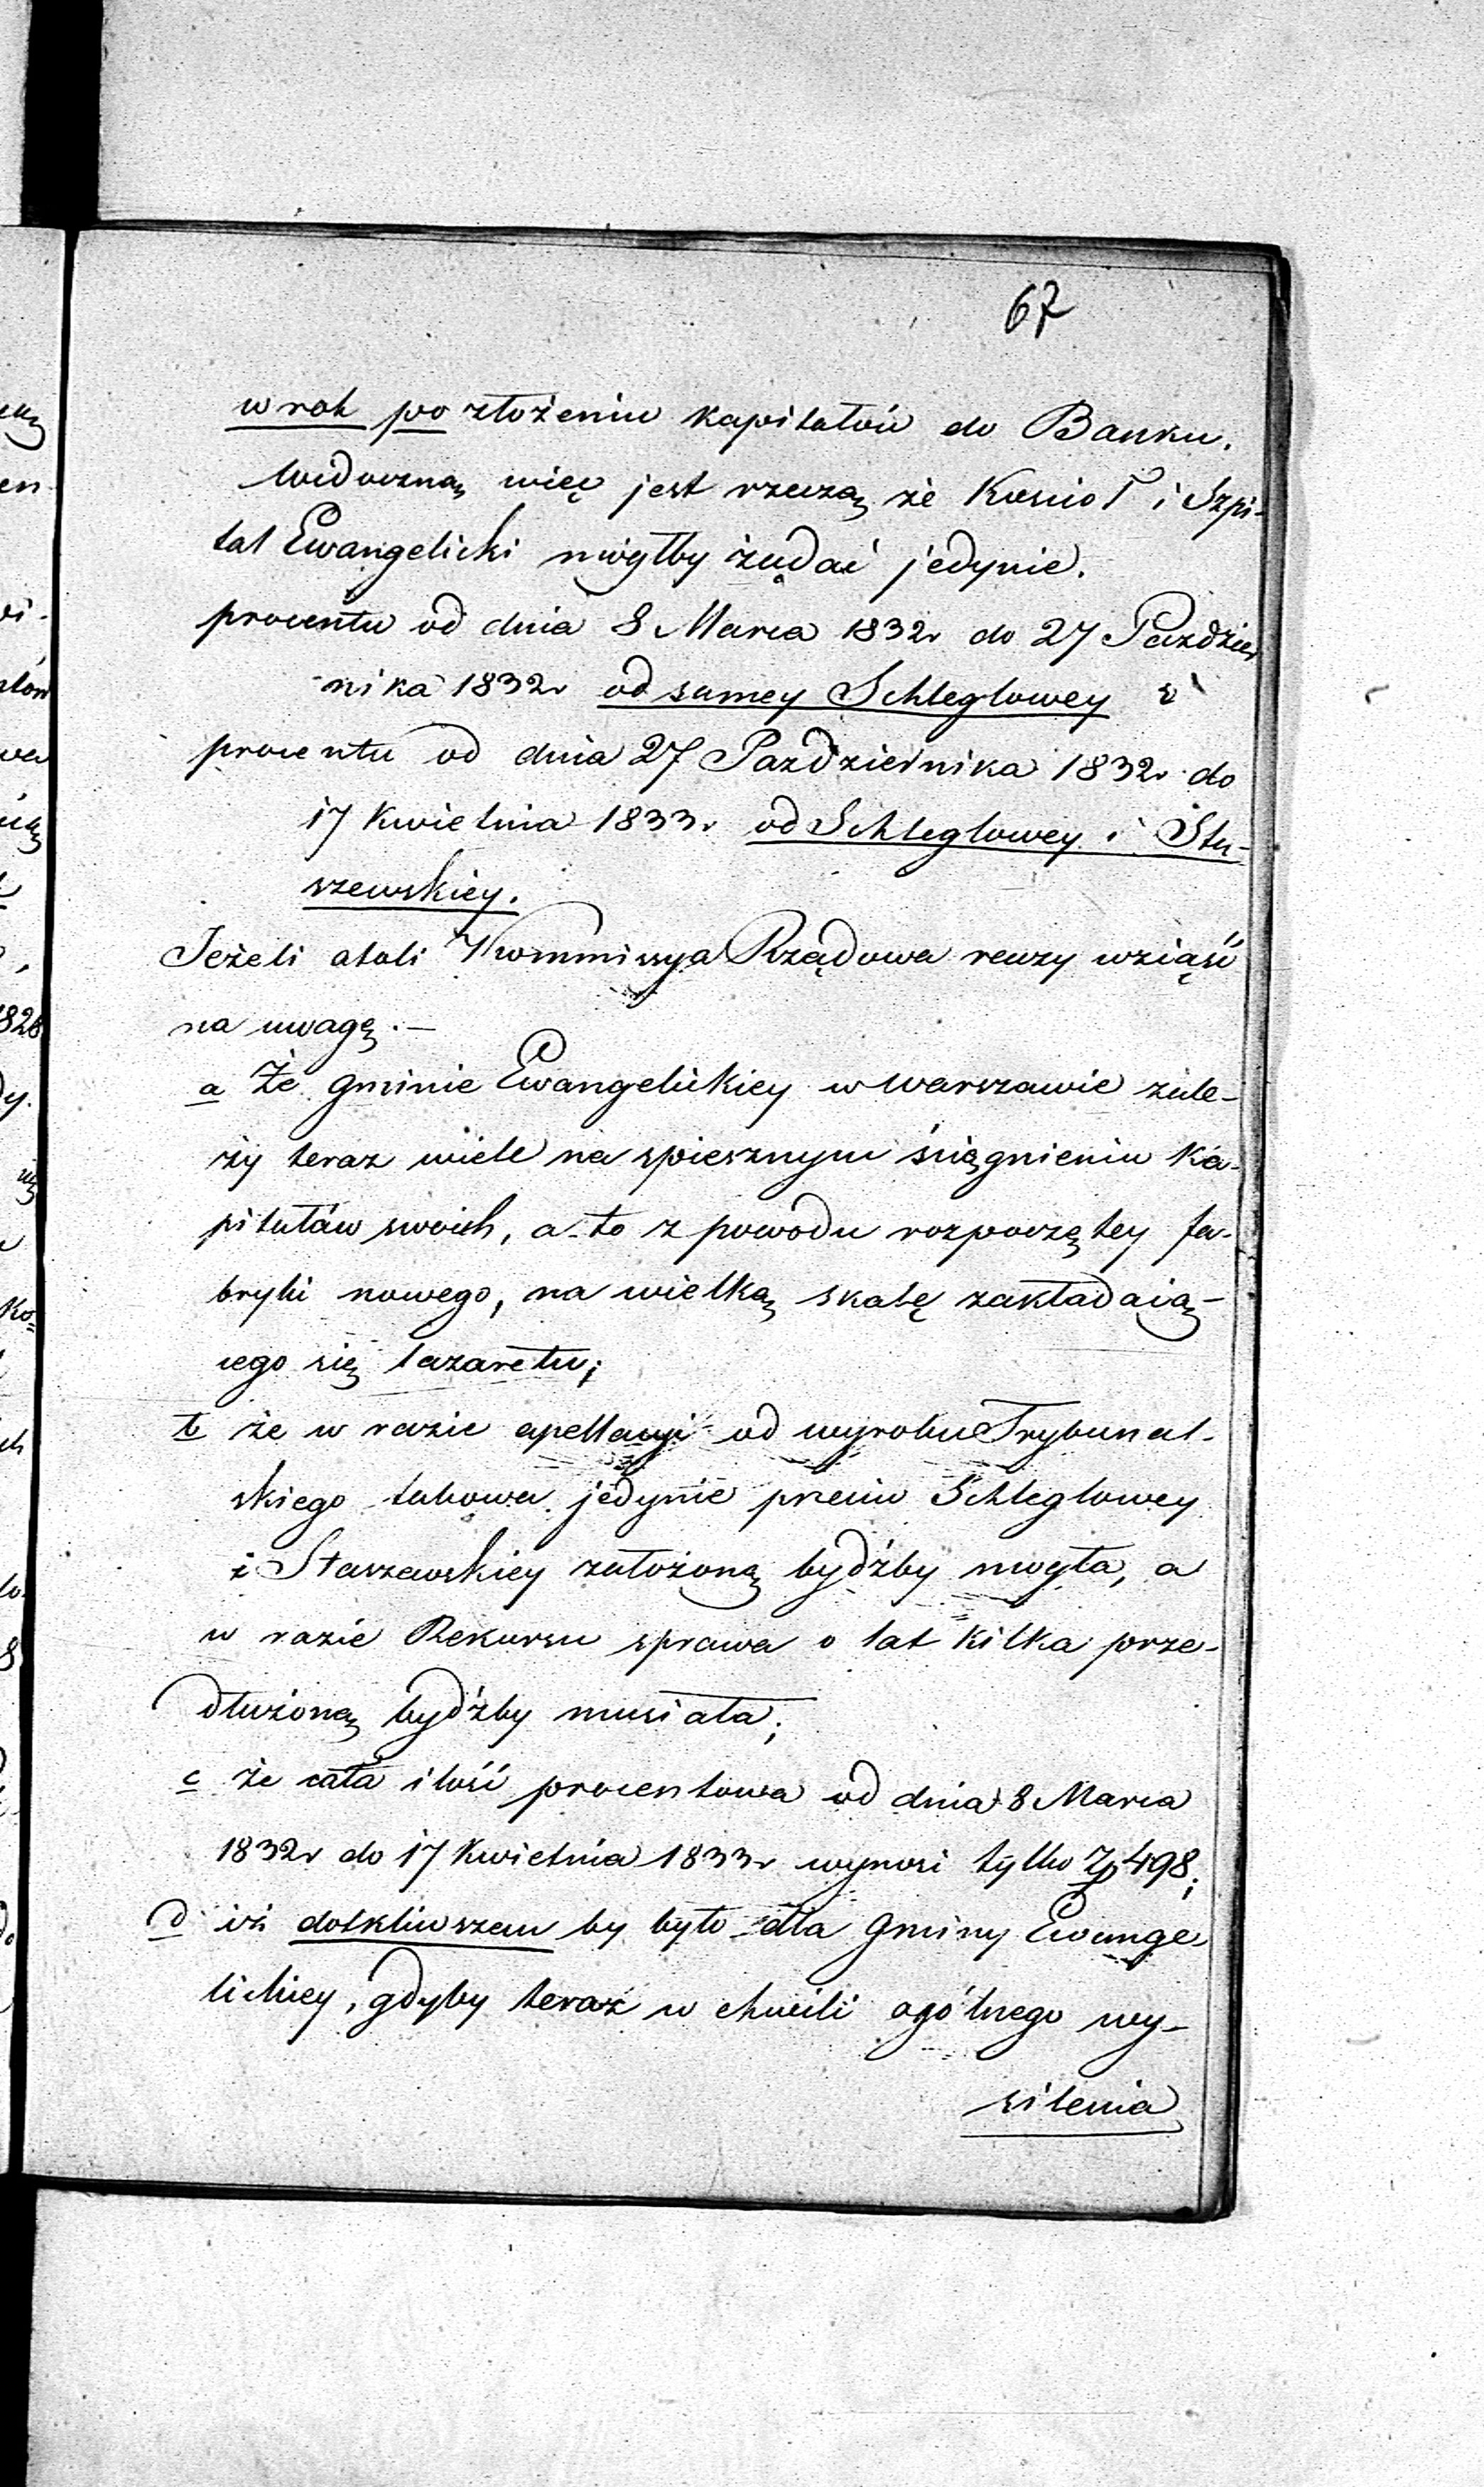 67
w rok po złożeniu kapitałów do Banku.
Widoczną więc jest rzeczą że Kościoł i Szpi-
tal Ewangelicki mógłby żądać jedynie.
procentu od dnia 8 Marca 1832r do 27 Paździer
-nika 1832r od samey Schleglowey i
procentu od dnia 27 Października 1832r do
17 Kwietnia 1833r od Schleglowey i Sta-
szewskiey.
Jeżeli atoli Kommissya Rządowa raczy wziąść
na uwagę.—
a Że gminie Ewangelickiey w Warszawie zale-
ży teraz wiele na spiesznym śiągnieniu ka-
pitałów swoich, a to z powodu rozpoczętey fa-
bryki nowego, na wielką skalę zakładaią-
cego się lazaretu;
b że w razie apellacyi od wyroku Trybunal-
skiego takowa jedynie przeciw Schleglowey
i Staszewskiey założoną bydźby mogła, a
w razie Rekursu sprawa o lat kilka prze-
dłużoną bydźby musiała;
c że cała ilość procentowa od dnia 8 Marca
1832r do 17 Kwietnia 1833r wynosi tylko Zp 498;
d iż dotkliwszem by było dla Gminy Ewange
lickiey, gdyby teraz w chwili ogólnego wy-
silenia